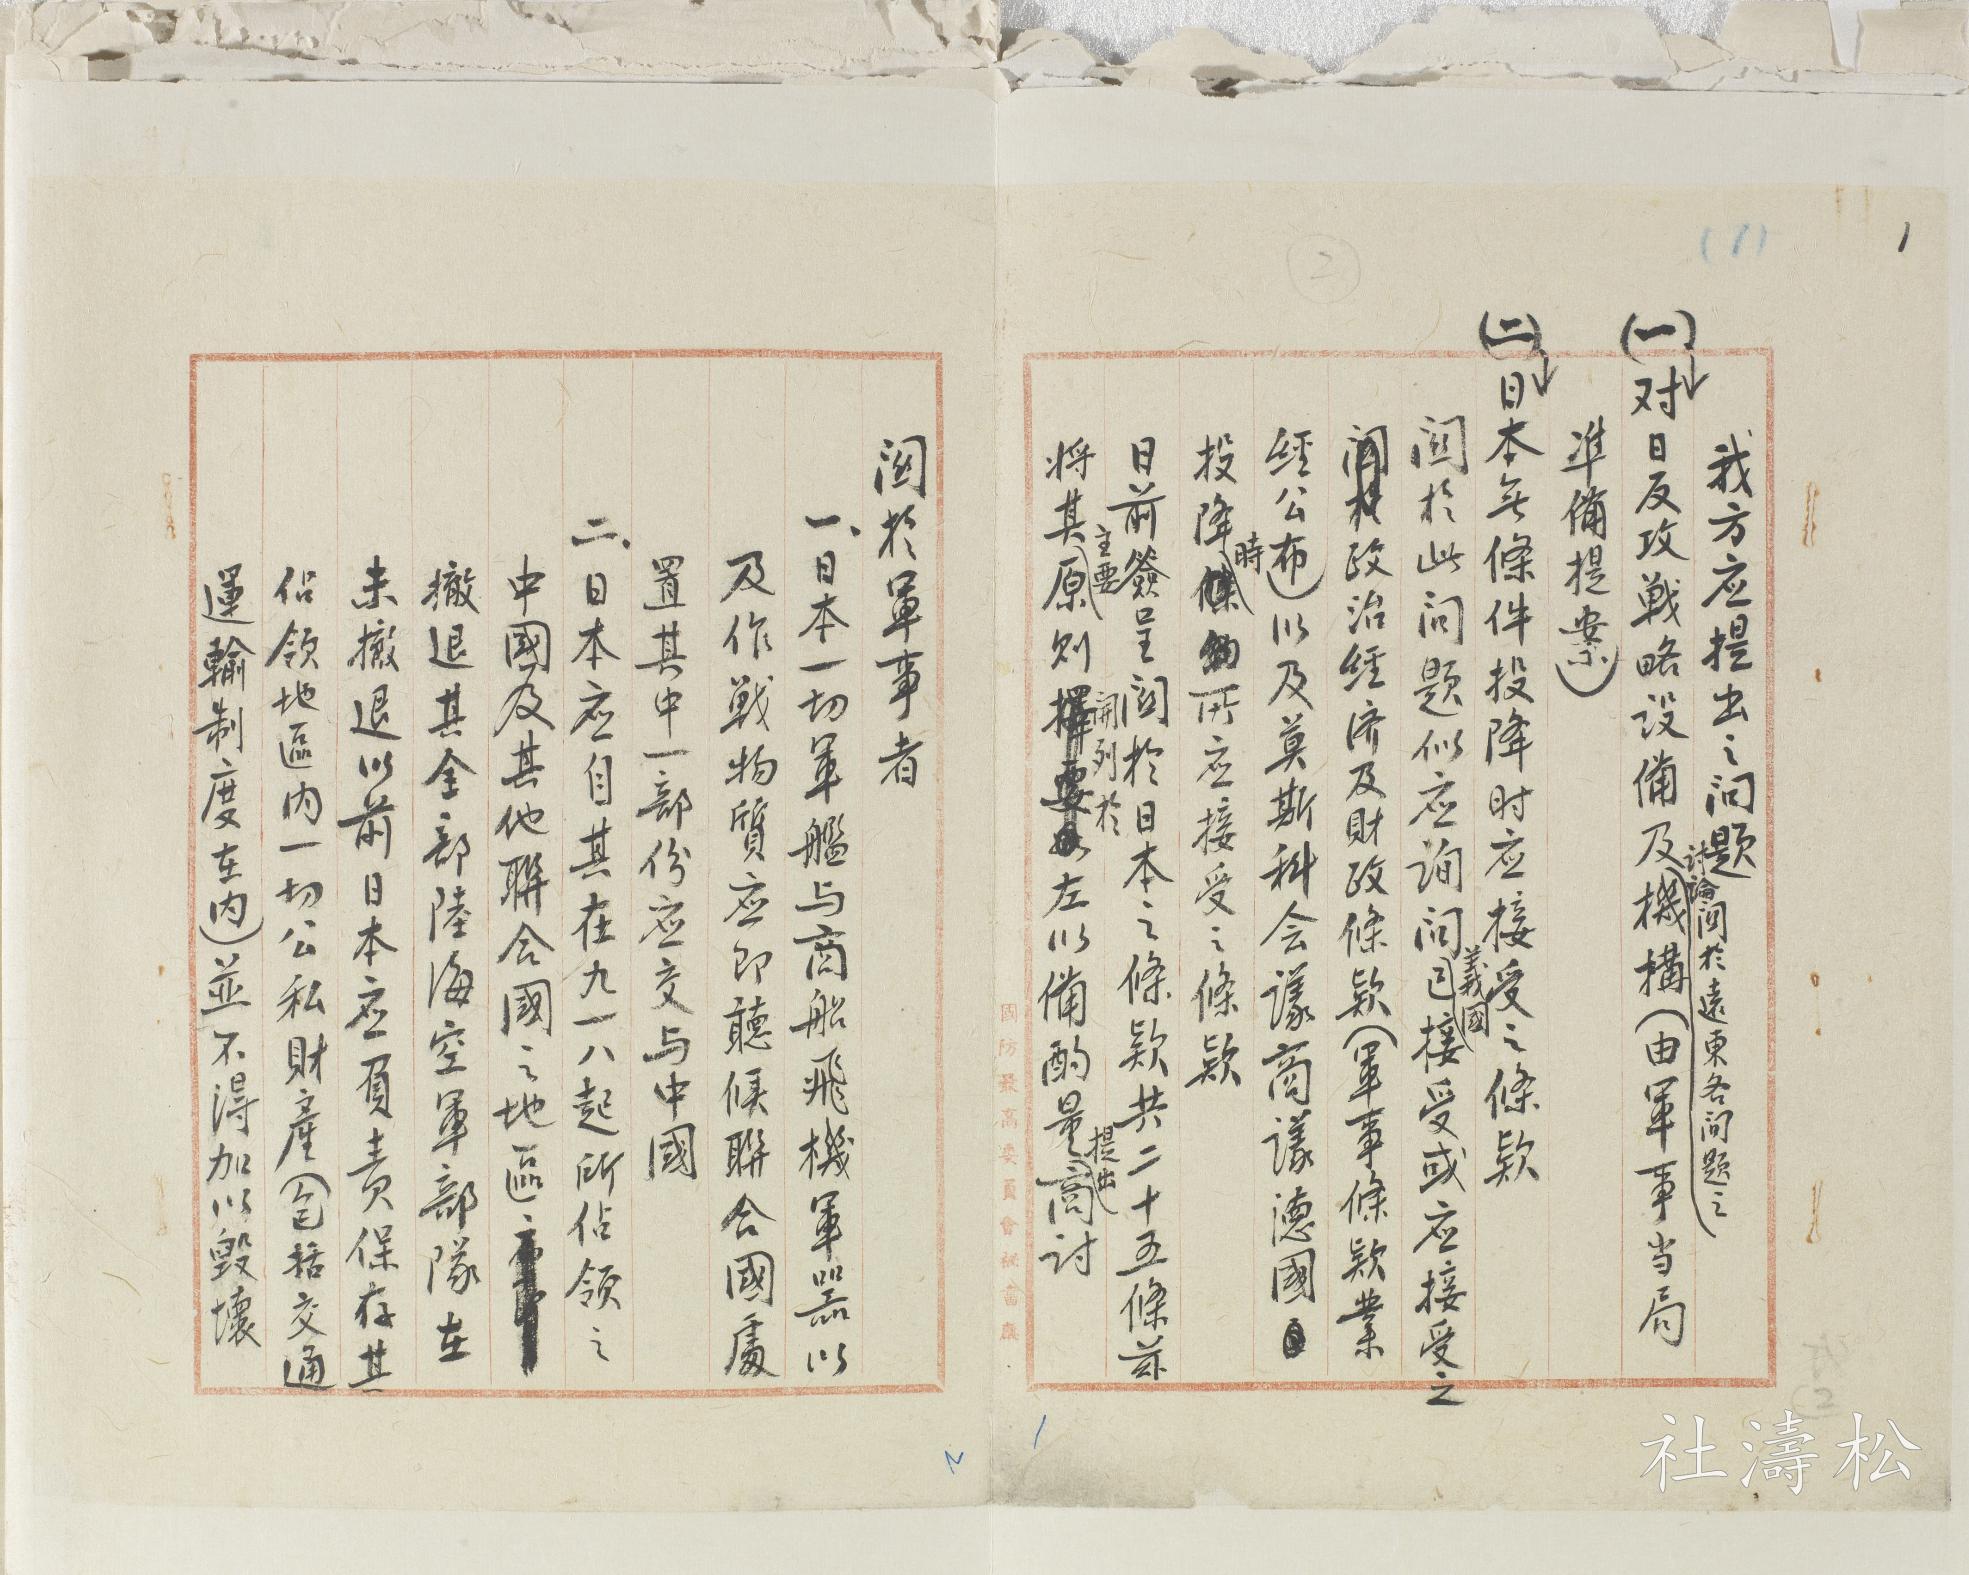 1
(1)
2
我方应提出之问題
(一)对日反攻战略设備及討論関於遠東各问題之機構(由軍事当局
準備提案)
(二)日本无條件投降时应接受之條欵
関於此问題似应询问義國已接受或应接受之
政治経济及財政條欵(軍事條欵業
経公布)以及莫斯科会議商議德國
投降時所应接受之條欵
日前簽呈関於日本之條欵共二十五條茲
将其主要原则開列於左以備酌量提出商讨
国防最高委員會秘書廳
関於軍事者
一、日本一切軍艦与商船飛機軍器以
及作战物質应即聽候聯合國處
置其中一部份应交与中國
二、日本应自其在九一八起所佔領之
中國及其他聯合國之地區
撤退其全部陸海空軍部隊在
未撤退以前日本应負责保存其
佔領地區内一切公私財產(包括交通
運輸制度在内)並不得加以毀壞
1
2
松濤社